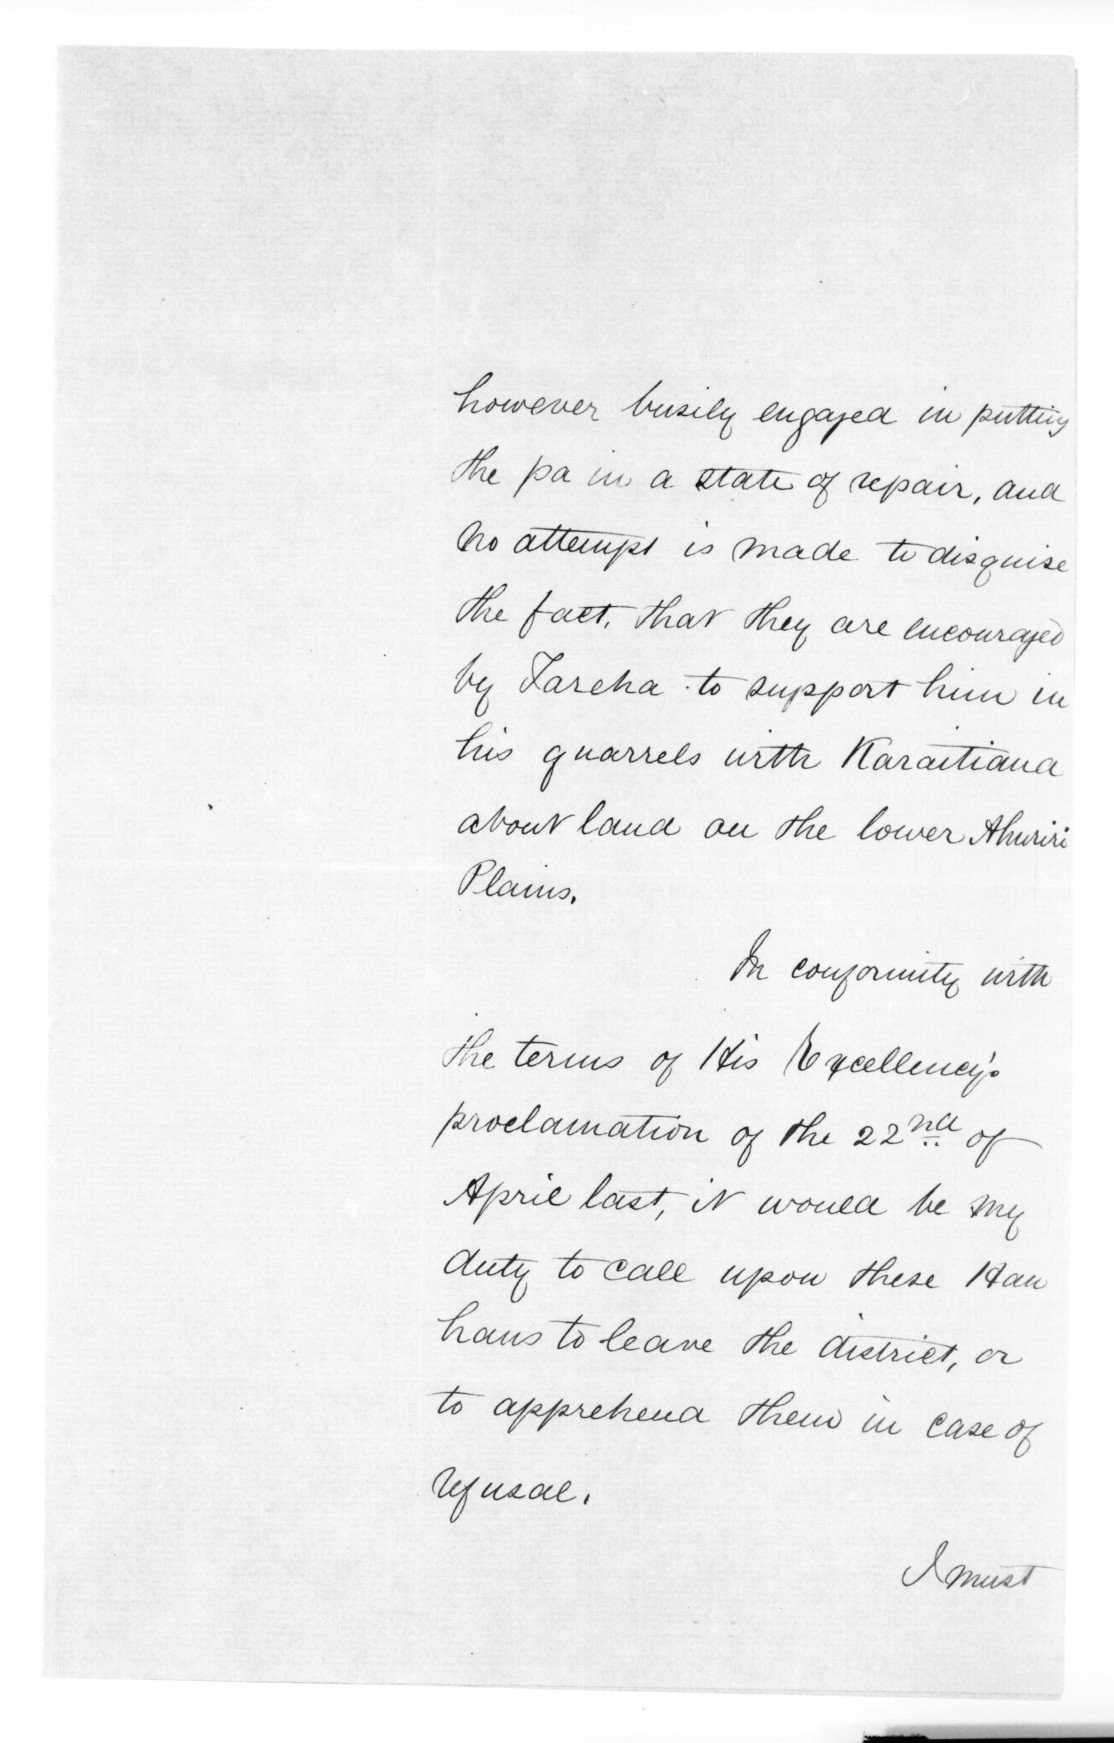 however busily engaged in putting
the pa in a state of repair, and
no attempt is made to disguise
the fact, that they are encouraged
by Tareha to support him in
his quarrels with Karaitiana
about land on the lower Ahuriri
Plains.
In conformity with
the terms of His Excellency's
proclamation of the 22nd of
April last, it would be my
duty to call upon these Hau
haus to leave the district, or
to apprehend them in case of
refusal.
I must